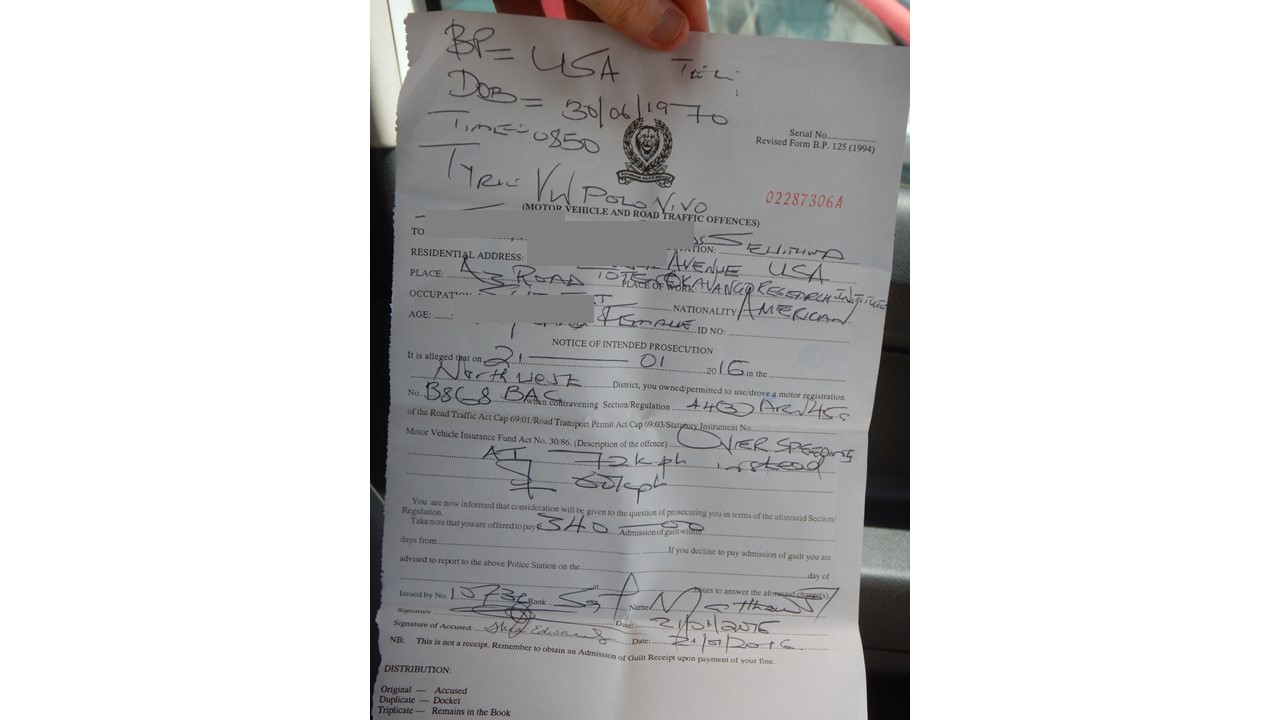 BP = USA Tel:
DOB = 30/06/1970
Time = 0850
Serial No.
Revised Form B.P. 125 (1994)
Type: VW POLO VIVO
02287306A
(MOTOR VEHICLE AND ROAD TRAFFIC OFFENCES)
TO
RESIDENTIAL ADDRESS: AVENUE USA
PLACE: A3 ROAD PLACE OF WORK: OKAVANGO RESEARCH INSTITUTE
NATIONALITY AMERICAN
AGE: FEMALE ID NO:
NOTICE OF INTENDED PROSECUTION
It is alleged that on 21 01 2016 in the
North West District, you owned/permitted to use/drove a motor registration
No. B868 BAC when contravening Section/Regulation
of the Road Traffic Act Cap 69:01/Road Transport Permit Act Cap 69:03/Statutory Instrument No.
Motor Vehicle Insurance Fund Act No. 30/86. (Description of the offence) OVER SPEEDING
AT 72kph instead
of 60kph
You are now informed that consideration will be given to the question of prosecuting you in terms of the aforesaid Section/
Regulation.
Take note that you are offered to pay 340-00 Admission of guilt within
days from If you decline to pay admission of guilt you are
advised to report to the above Police Station on the day of
at hours to answer the aforesaid charge(s)
Issued by No. Rank Sgt Name
Signature Date: 21/01/2016
Signature of Accused: Date: 21/01/2016
NB: This is not a receipt. Remember to obtain an Admission of Guilt Receipt upon payment of your fine.
DISTRIBUTION:
Original — Accused
Duplicate — Docket
Triplicate — Remains in the Book